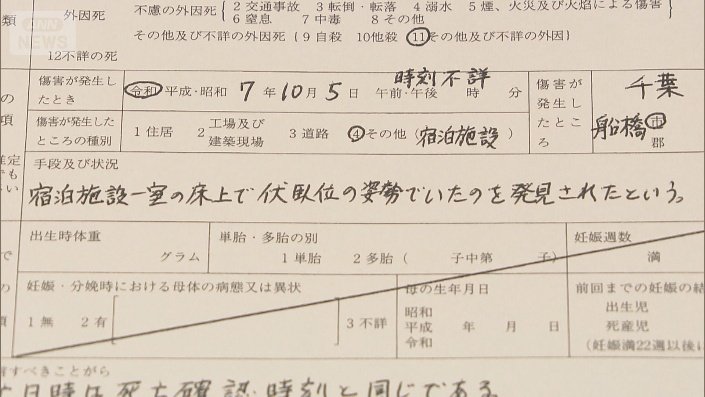 類
外因死
不慮の外因死
2 交通事故 3 転倒・転落 4 溺水 5 煙、火災及び火焔による傷害
6 窒息 7 中毒 8 その他
その他及び不詳の外因死{9 自殺 10他殺 11その他及び不詳の外因}
12不詳の死
ANN
NEWS
傷害が発生したとき
令和・平成・昭和 7 年 10 月 5 日 午前・午後 時 分
時刻不詳
傷害が発生したところの種別
1 住居 2 工場及び建築現場 3 道路 4その他(宿泊施設)
傷害が発生したところ
千葉
船橋 市
郡
手段及び状況
宿泊施設一室の床上で伏臥位の姿勢でいたのを発見されたという。
出生時体重
グラム
単胎・多胎の別
1 単胎 2 多胎( 子中第 子)
妊娠週数
満
妊娠・分娩時における母体の病態又は異状
1 無 2 有
3 不詳
母の生年月日
昭和
平成 年 月 日
令和
前回までの妊娠の結
出生児
死産児
(妊娠満22週以後に
すべきことがら
日時は死亡確認時刻と同じである